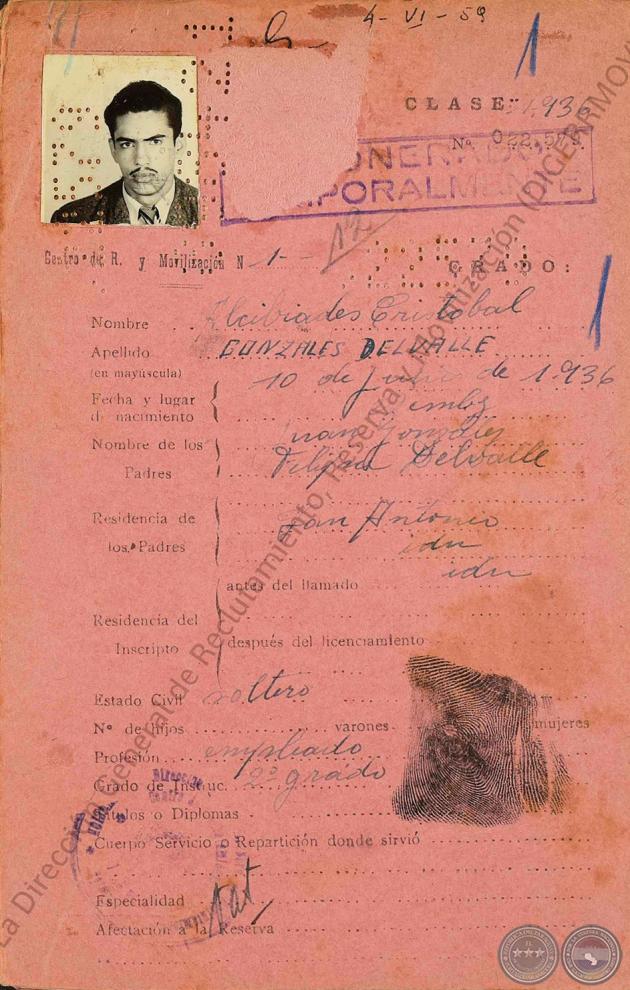 4 - VI - 59
CLASE 1.936
Nº 022.579
ONERADO
PORALMENTE
Centro de R. y Movilización N 1-
GRADO:
Nombre Alcibiades Cristobal
Apellido GONZALES DELVALLE
(en mayúscula)
10 de Junio de 1.936
Fecha y lugar
de nacimiento Ñemby
Nombre de los Juan Gonzales
Padres Delvalle
Residencia de San Antonio
los Padres idn
idn
antes del llamado
Residencia del
Inscripto
después del licenciamiento
Estado Civil soltero
Nº de hijos varones mujeres
Profesión empleado
Grado de Instruc. 2º grado
Titulos o Diplomas
Cuerpo Servicio o Repartición donde sirvió
Especialidad
Afectación a la Reserva
La Dirección General de Reclutamiento, Reserva y Movilización (DIGERRMOV)